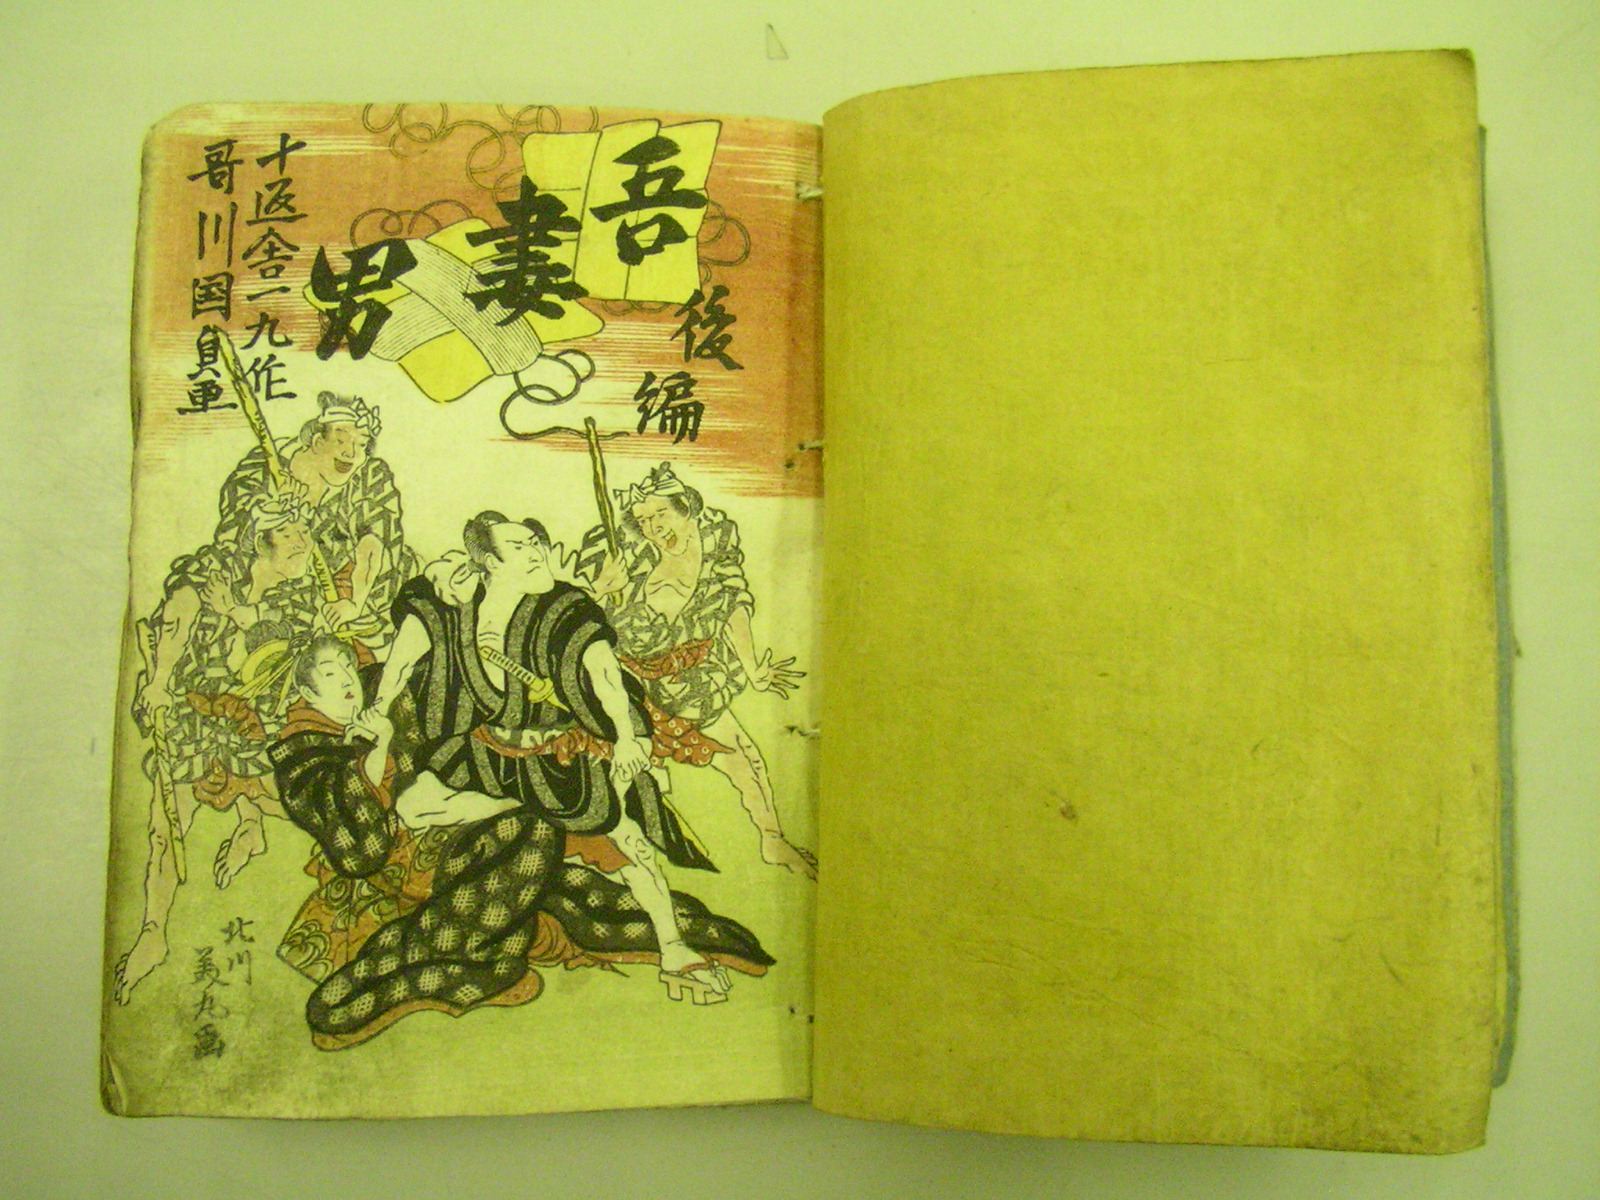 吾妻男
後編
十返舎一九作
哥川国貞画
北川
美丸画